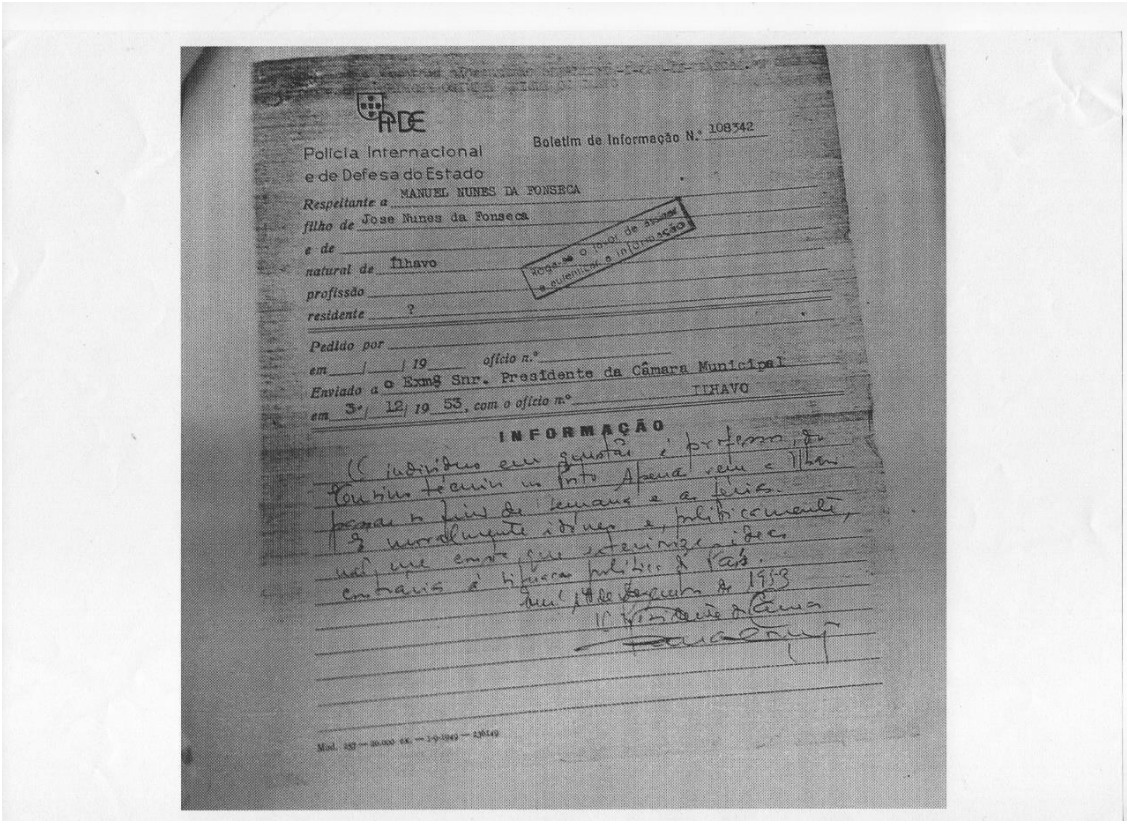 PIDE
Polícia Internacional
e de Defesa do Estado
Boletim de Informação N.º 108342
Respeitante a MANUEL NUNES DA FONSECA
filho de Jose Nunes da Fonseca
e de
natural de Ílhavo
profissão
residente ?
Roga-se o favor de assinar
e autenticar a informação
Pedido por
em / / 19 ofício n.º
Enviado a o Exmº Snr. Presidente da Câmara Municipal
em 3 / 12 / 19 53, com o ofício n.º ILHAVO
INFORMAÇÃO
O indivíduo em questão é professor do
Ensino técnico no Porto Apenas vem a Ilhavo
passar o fim de semana e as férias.
É moralmente idoneo e, politicamente,
não me consta que exteriorize ideias
contrarias á situação politica do País.
de Dezembro de 1953
O Presidente da Câmara
Mod. 257 — 20.000 ex. — 1-9-1949 — 136149